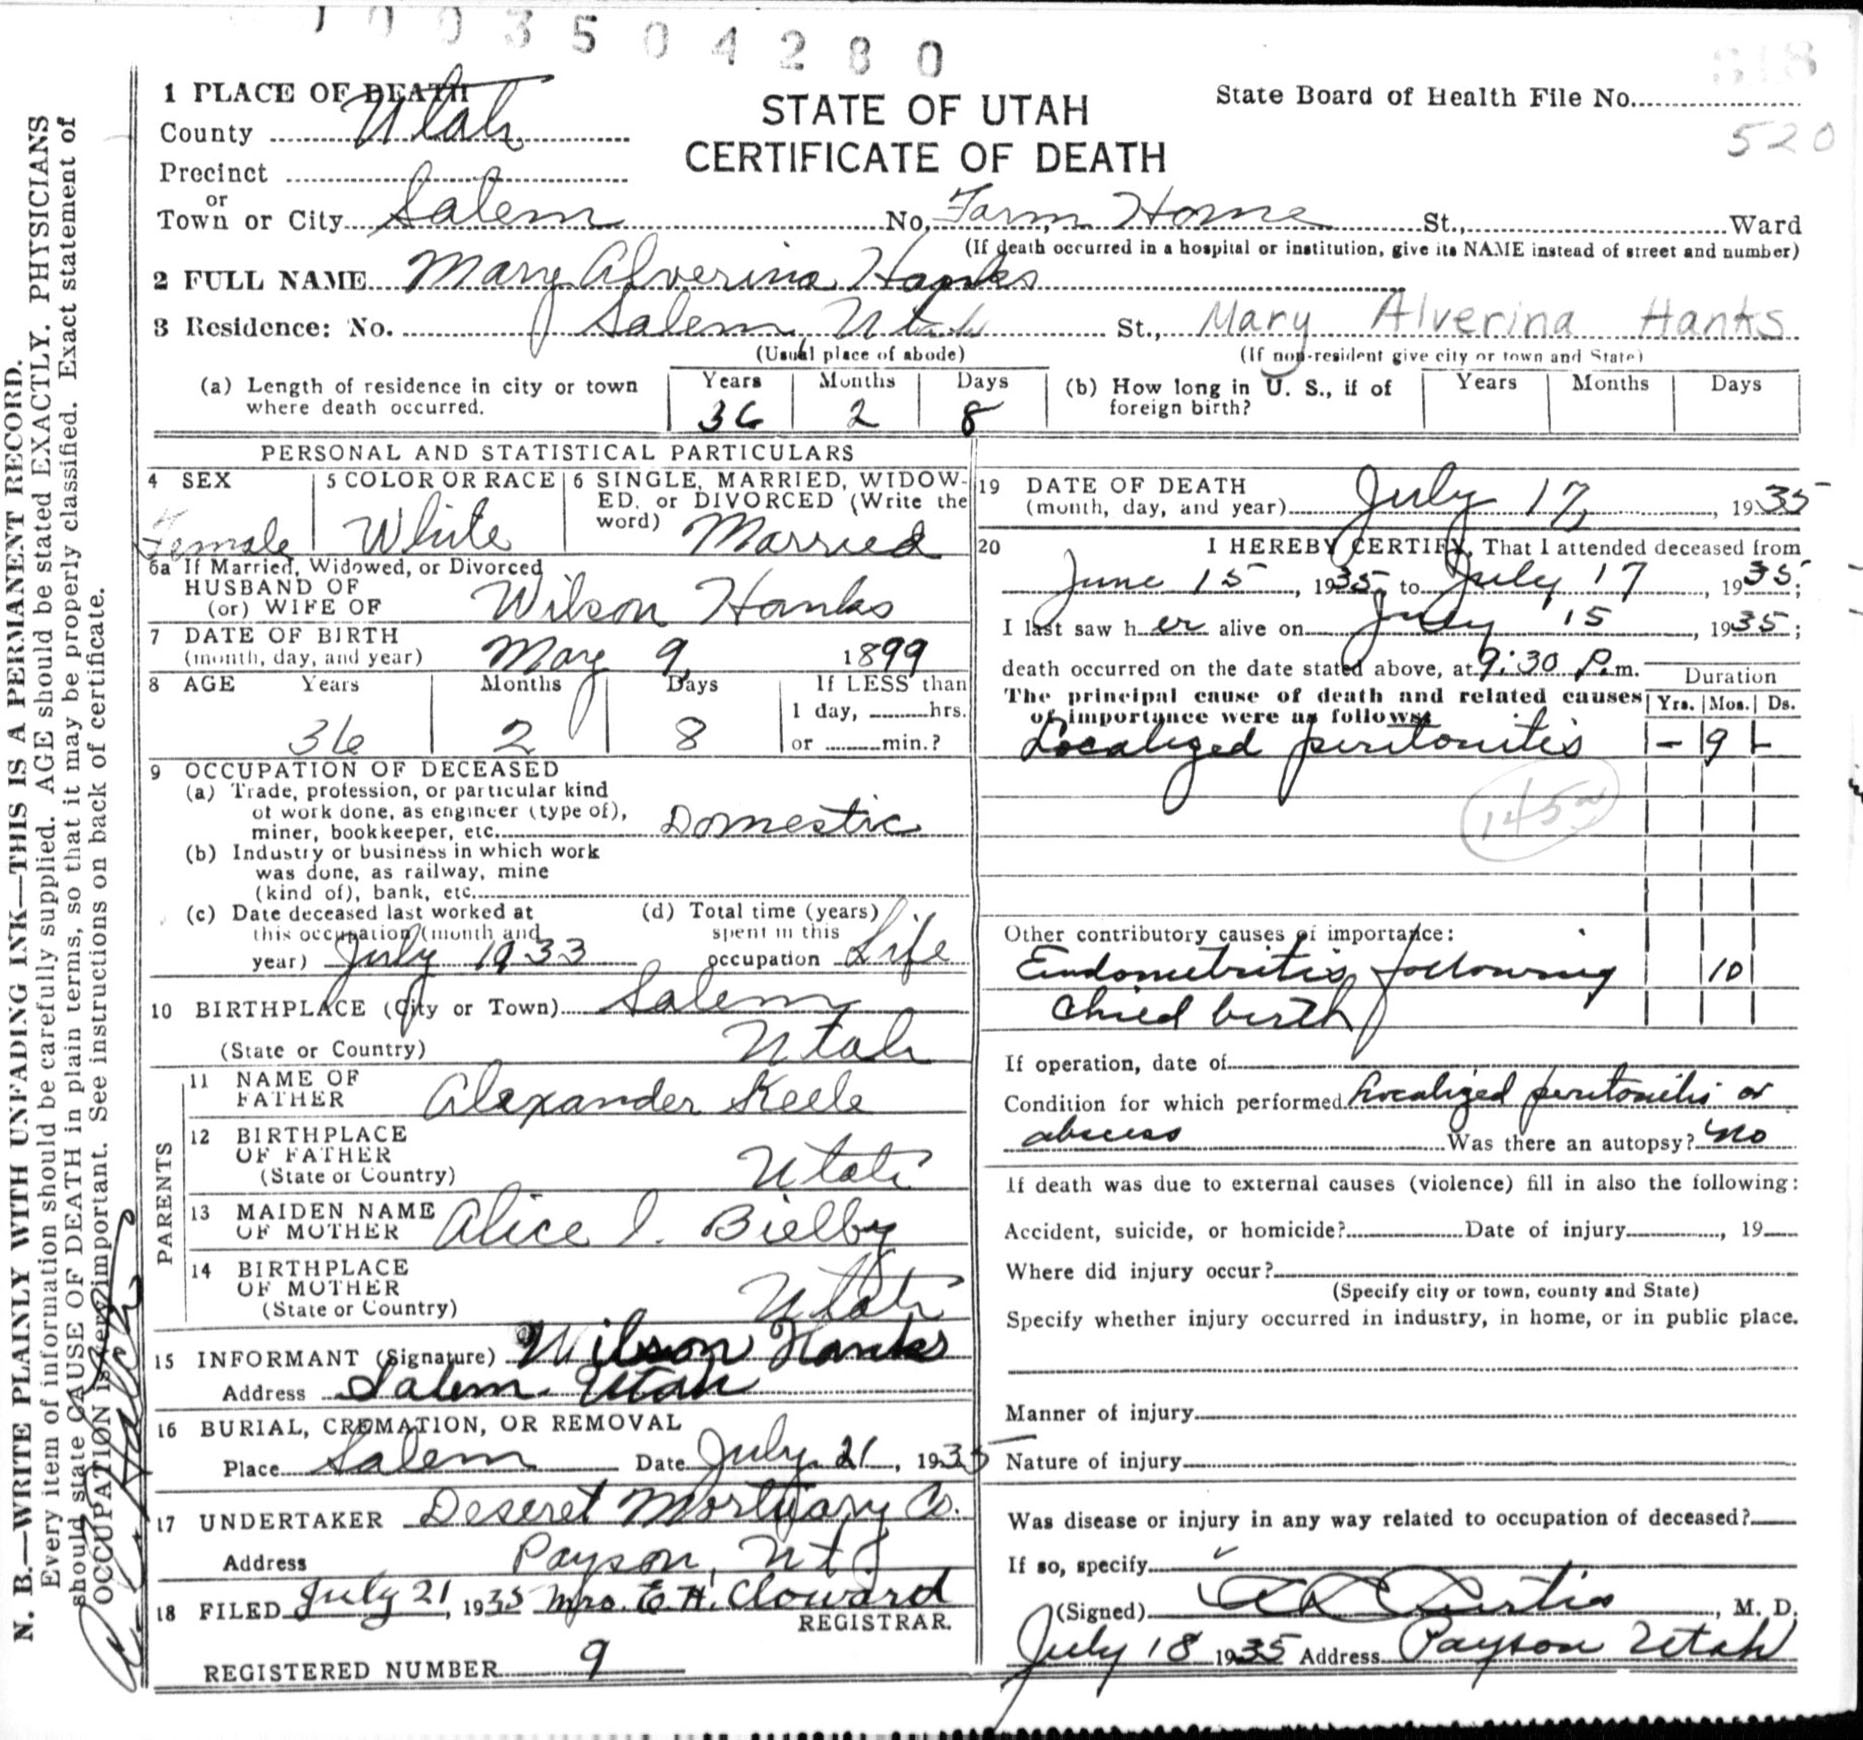 1003504280
618
520
1 PLACE OF DEATH
County Utah
STATE OF UTAH
CERTIFICATE OF DEATH
State Board of Health File No.
Precinct
or
Town or City Salem No. Farm Home St., Ward
(If death occurred in a hospital or institution, give its NAME instead of street and number)
2 FULL NAME Mary Alverina Hanks
3 Residence: No. Salem Utah St., Mary Alverina Hanks
(Usual place of abode) (If non-resident give city or town and State)
(a) Length of residence in city or town where death occurred. Years 36 Months 2 Days 8
(b) How long in U. S., if of foreign birth? Years Months Days
PERSONAL AND STATISTICAL PARTICULARS
4 SEX Female
5 COLOR OR RACE White
6 SINGLE, MARRIED, WIDOW-
ED, or DIVORCED (Write the
word) Married
6a If Married, Widowed, or Divorced
HUSBAND OF
(or) WIFE OF Wilson Hanks
7 DATE OF BIRTH
(month, day, and year) May 9, 1899
8 AGE Years Months Days If LESS than
1 day, hrs.
36 2 8 or min.?
9 OCCUPATION OF DECEASED
(a) Trade, profession, or particular kind
of work done, as engineer (type of),
miner, bookkeeper, etc. Domestic
(b) Industry or business in which work
was done, as railway, mine
(kind of), bank, etc.
(c) Date deceased last worked at
this occupation (month and
year) July 1933
(d) Total time (years)
spent in this
occupation Life
10 BIRTHPLACE (City or Town) Salem
(State or Country) Utah
PARENTS
11 NAME OF
FATHER Alexander Keele
12 BIRTHPLACE
OF FATHER
(State or Country) Utah
13 MAIDEN NAME
OF MOTHER Alice I. Bielby
14 BIRTHPLACE
OF MOTHER
(State or Country) Utah
15 INFORMANT (Signature) Wilson Hanks
Address Salem. Utah
16 BURIAL, CREMATION, OR REMOVAL
Place Salem Date July 21, 1935
17 UNDERTAKER Deseret Mortuary Co.
Address Payson, Ut
18 FILED July 21, 1935 Mrs. E. H. Cloward
REGISTRAR.
REGISTERED NUMBER 9
19 DATE OF DEATH
(month, day, and year) July 17, 1935
20 I HEREBY CERTIFY, That I attended deceased from
June 15, 1935, to July 17, 1935;
I last saw her alive on July 15, 1935;
death occurred on the date stated above, at 9:30 P.m.
Duration
The principal cause of death and related causes
of importance were as follows: Yrs. Mos. Ds.
Localized peritonitis - 9 -
145a
Other contributory causes of importance:
Endometritis following 10
child birth
If operation, date of
Condition for which performed Localized peritonitis or
abscess Was there an autopsy? No
If death was due to external causes (violence) fill in also the following:
Accident, suicide, or homicide? Date of injury, 19
Where did injury occur?
(Specify city or town, county and State)
Specify whether injury occurred in industry, in home, or in public place.
Manner of injury
Nature of injury
Was disease or injury in any way related to occupation of deceased?
If so, specify
(Signed) A D Curtis, M. D.
July 18 1935 Address Payson Utah
N. B.—WRITE PLAINLY WITH UNFADING INK—THIS IS A PERMANENT RECORD.
Every item of information should be carefully supplied. AGE should be stated EXACTLY. PHYSICIANS
should state CAUSE OF DEATH in plain terms, so that it may be properly classified. Exact statement of
OCCUPATION is very important. See instructions on back of certificate.